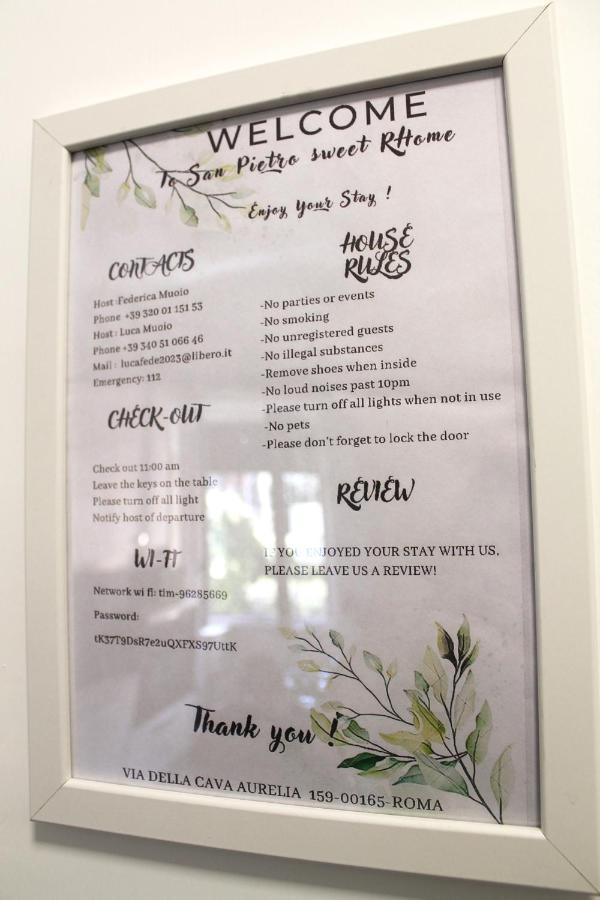 WELCOME
To San Pietro sweet RHome
Enjoy Your Stay !
CONTACTS
Host :Federica Muoio
Phone +39 320 01 151 53
Host : Luca Muoio
Phone +39 340 51 066 46
Mail : lucafede2023@libero.it
Emergency: 112
CHECK-OUT
Check out 11:00 am
Leave the keys on the table
Please turn off all light
Notify host of departure
WI-FI
Network wi fi: tim-96285669
Password:
tK37T9DsR7e2uQXFXS97UttK
HOUSE
RULES
-No parties or events
-No smoking
-No unregistered guests
-No illegal substances
-Remove shoes when inside
-No loud noises past 10pm
-Please turn off all lights when not in use
-No pets
-Please don't forget to lock the door
REVIEW
IF YOU ENJOYED YOUR STAY WITH US,
PLEASE LEAVE US A REVIEW!
Thank you !
VIA DELLA CAVA AURELIA 159-00165-ROMA